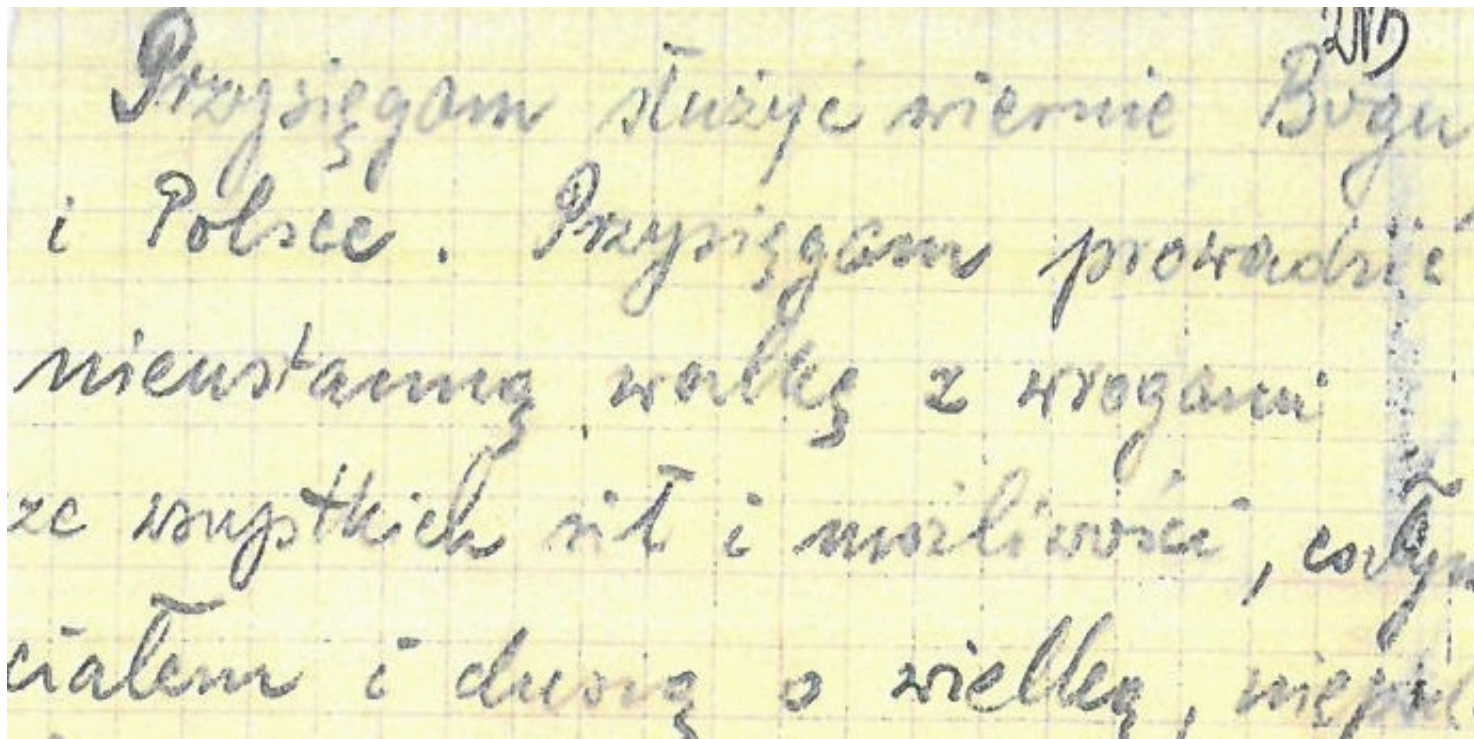 Przysięgam służyć wiernie Bogu
i Polsce. Przysięgam prowadzić
nieustanną walkę z wrogami
ze wszystkich sił i możliwości, całym
ciałem i duszą o wielką, niepod